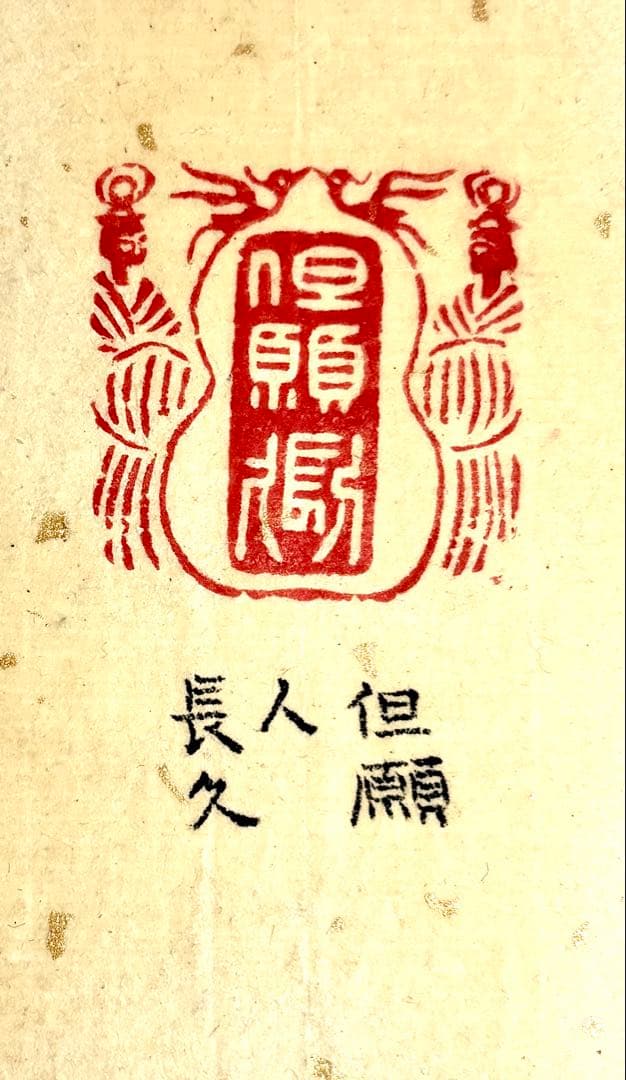 但願人長久
但願
人
長久